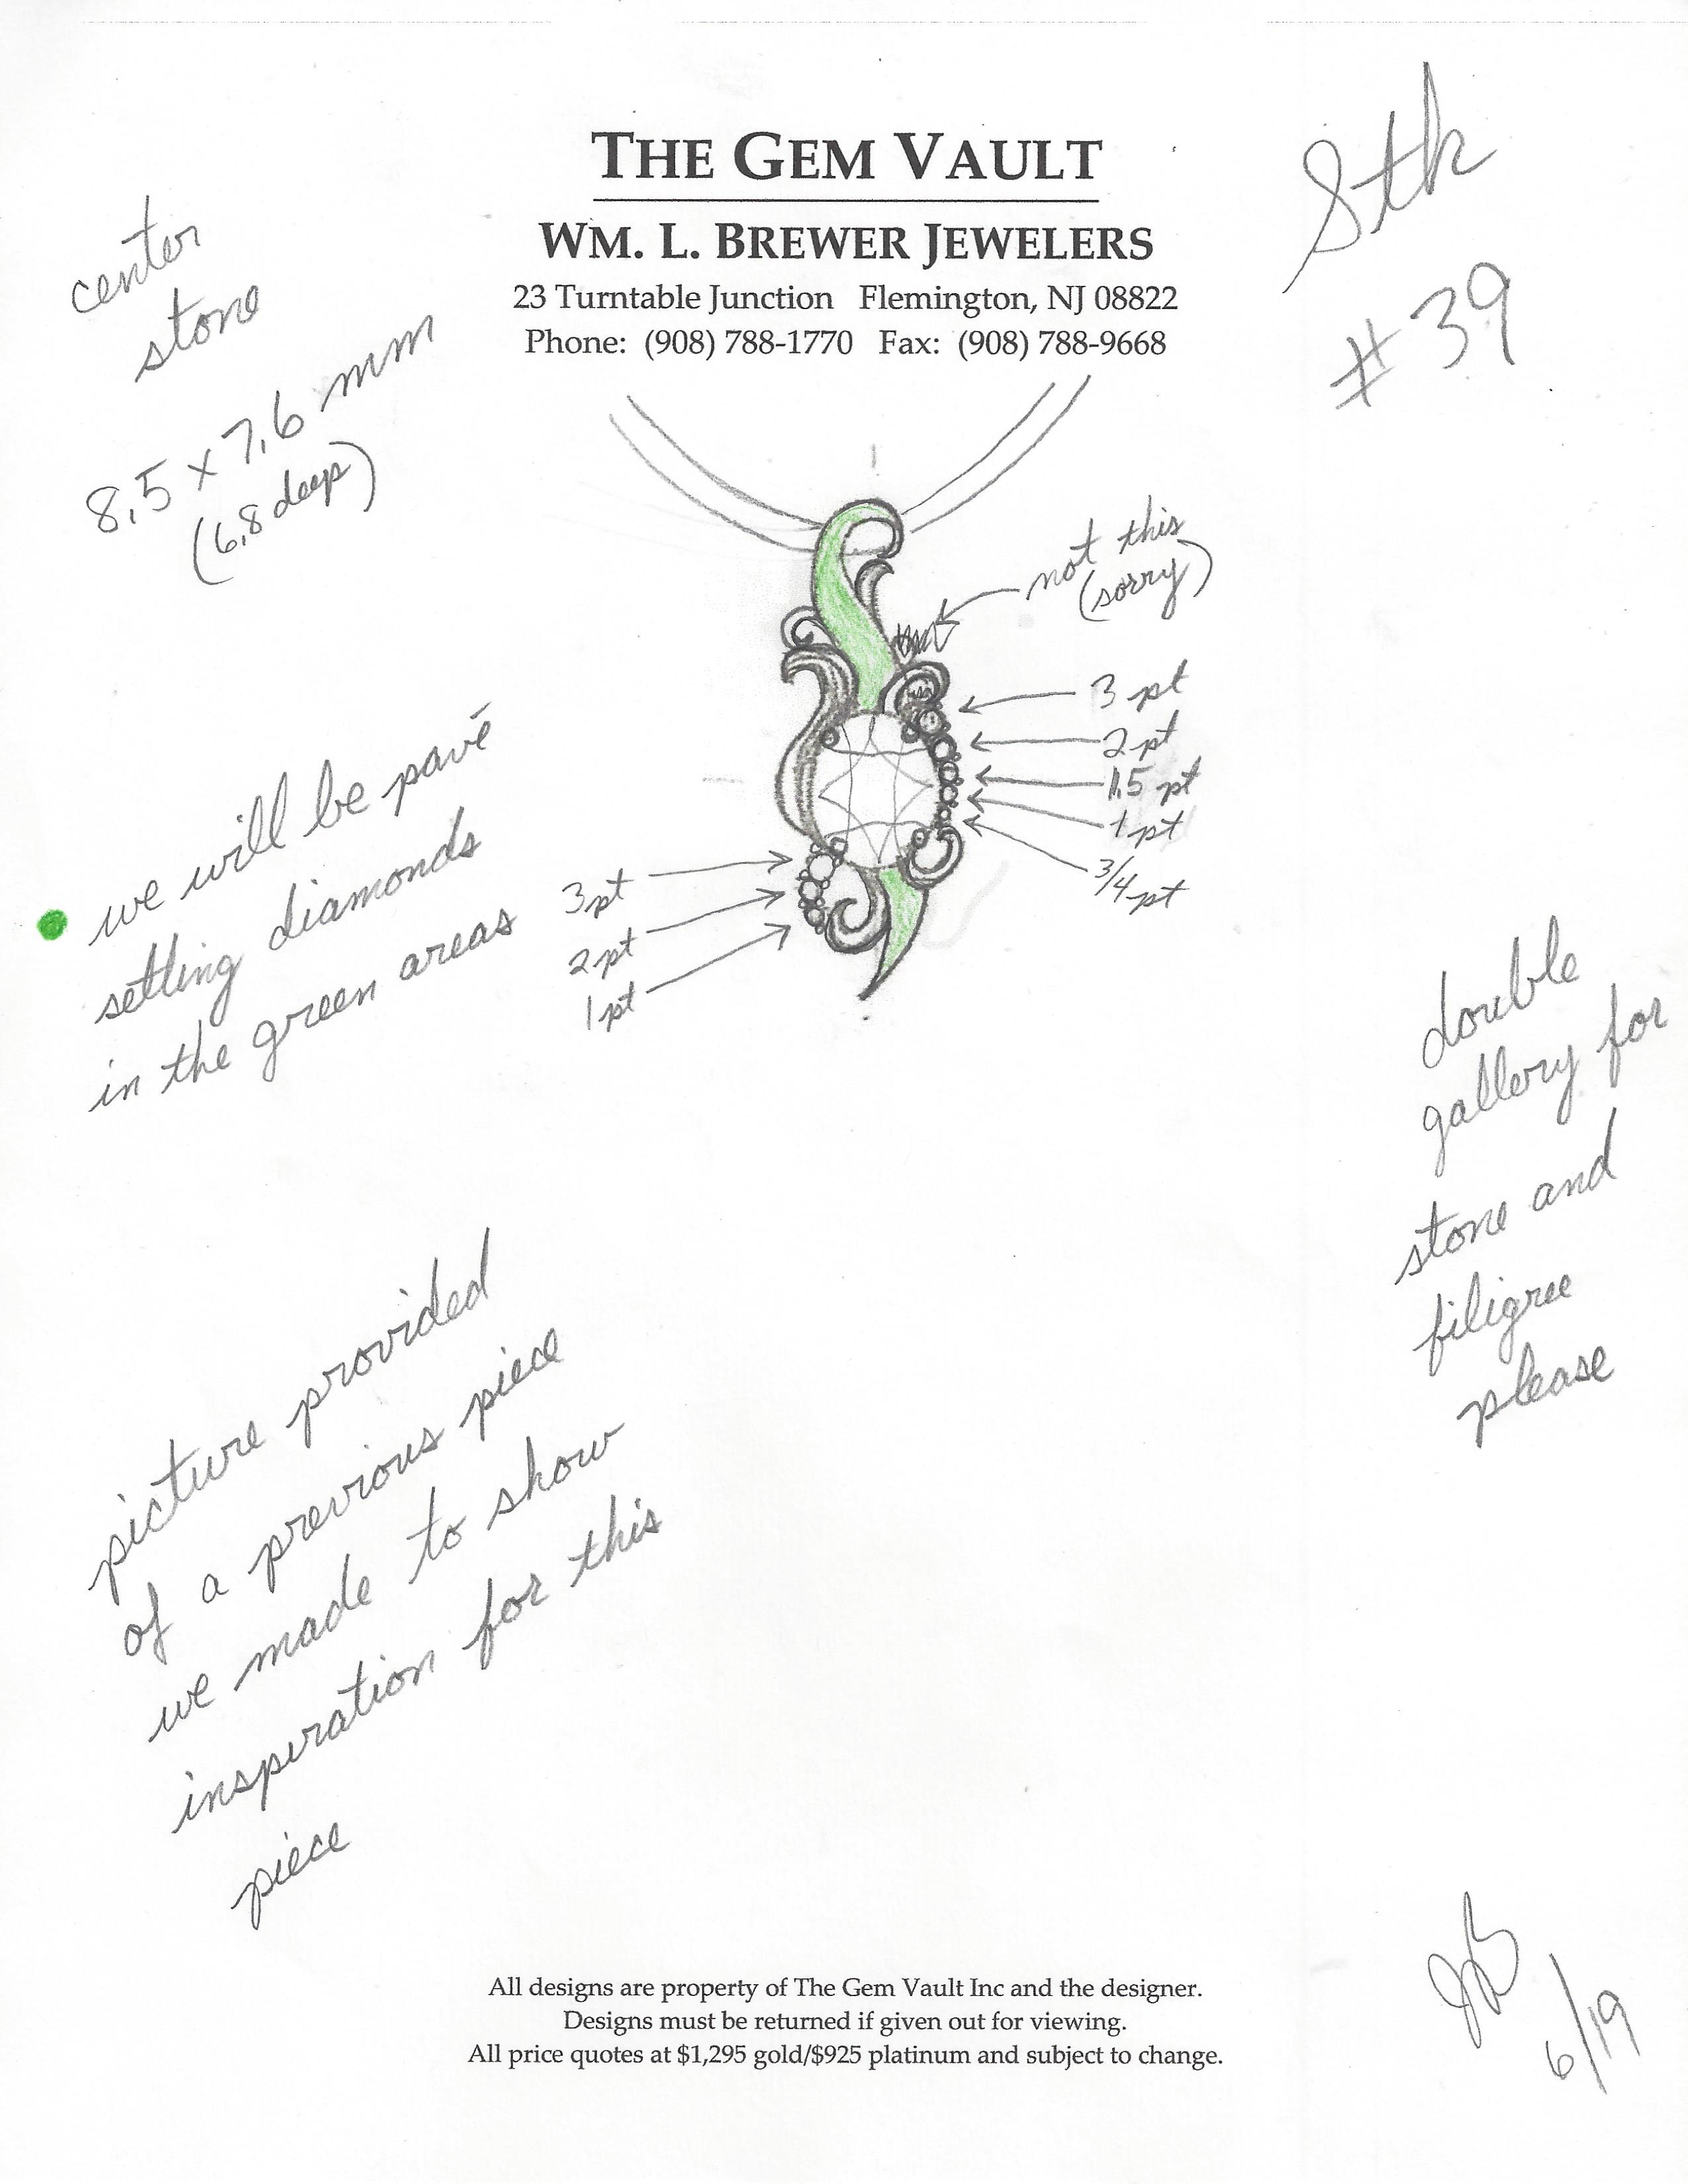 THE GEM VAULT
WM. L. BREWER JEWELERS
23 Turntable Junction Flemington, NJ 08822
Phone: (908) 788-1770 Fax: (908) 788-9668
Stk
# 39
center
stone
8.5 x 7.6 mm
(6.8 deep)
not this
(sorry)
3 pt
2 pt
1.5 pt
1 pt
3/4 pt
3 pt
2 pt
1 pt
we will be pavé
setting diamonds
in the green areas
double
gallery for
stone and
filigree
please
picture provided
of a previous piece
we made to show
inspiration for this
piece
JB
6/19
All designs are property of The Gem Vault Inc and the designer.
Designs must be returned if given out for viewing.
All price quotes at $1,295 gold/$925 platinum and subject to change.